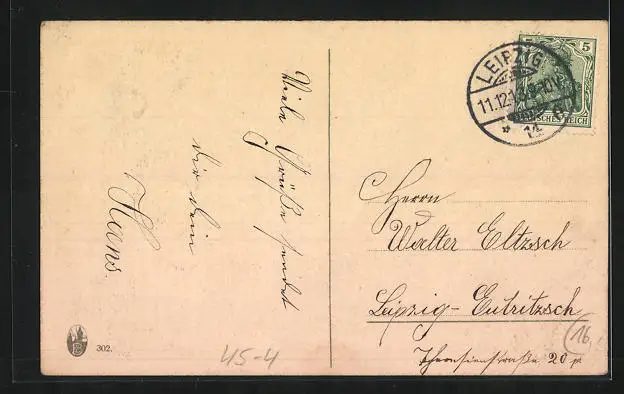 Viele Grüße sendet
dir dein
Hans.
LEIPZIG
11.12.1
14
5
DEUTSCHES REICH
Herrn
Walter Eltzsch
Leipzig-Eutritzsch
Theresienstraße 20 p
16
302.
45-4